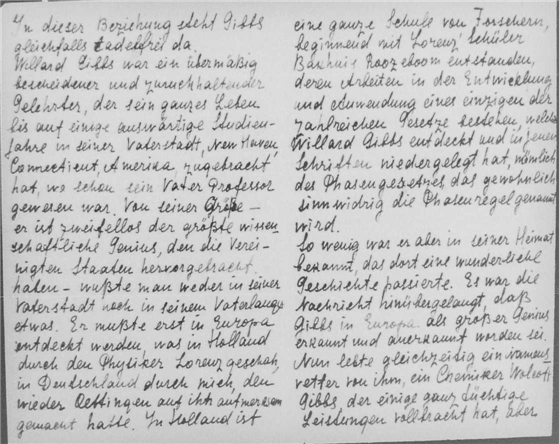 In dieser Beziehung steht Gibbs
gleichfalls tadelfrei da.
Willard Gibbs war ein übermäßig
bescheidener und zurückhaltender
Gelehrter, der sein ganzes Leben
bis auf einige auswärtige Studien-
jahre in seiner Vaterstadt, New Haven,
Connecticut, Amerika, zugebracht
hat, wo schon sein Vater Professor
gewesen war. Von seiner Größe –
er ist zweifellos der größte wissen
schaftliche Genius, den die Verei-
nigten Staaten hervorgebracht
haben – wußte man weder in seiner
Vaterstadt noch in seinem Vaterlande
etwas. Er mußte erst in Europa
entdeckt werden, was in Holland
durch den Physiker Lorenz geschah,
in Deutschland durch mich, den
wieder Oettingen auf ihn aufmerksam
gemacht hatte. In Holland ist
eine ganze Schule von Forschern,
beginnend mit Lorenz' Schüler
Bakhuis Roozeboom entstanden,
deren Arbeiten in der Entwicklung
und Anwendung eines einzigen der
zahlreichen Gesetze bestehen, welche
Willard Gibbs entdeckt und in jenen
Schriften niedergelegt hat, nämlich
des Phasengesetzes das gewöhnlich
sinnwidrig die Phasenregel genannt
wird.
So wenig war er aber in seiner Heimat
bekannt, das dort eine wunderliche
Geschichte passierte. Es war die
Nachricht hinübergelangt, daß
Gibbs in Europa als großer Genius
erkannt und anerkannt worden sei.
Nun lebte gleichzeitig ein Namens-
vetter von ihm, ein Chemiker Wolcott
Gibbs, der einige ganz tüchtige
Leistungen vollbracht hat, aber